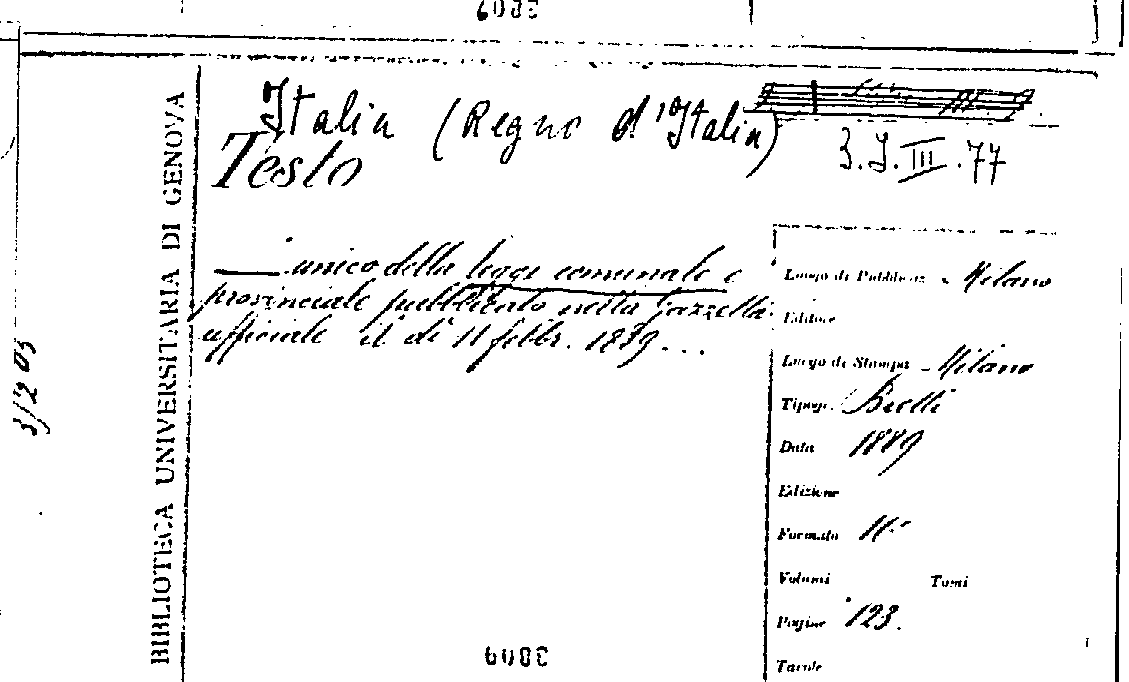 Italia (Regno d'Italia)
3.J.III.77
Testo
BIBLIOTECA UNIVERSITARIA DI GENOVA
— unico della legge comunale e
provinciale pubblicato nella Gazzetta
ufficiale il dì 11 febbr. 1889...
Luogo di Pubblicaz. - Milano
Editore
Luogo di Stampa - Milano
Tipogr.
Data 1889
Edizione
Formato
Volumi Tomi
Pagine 123.
Tavole